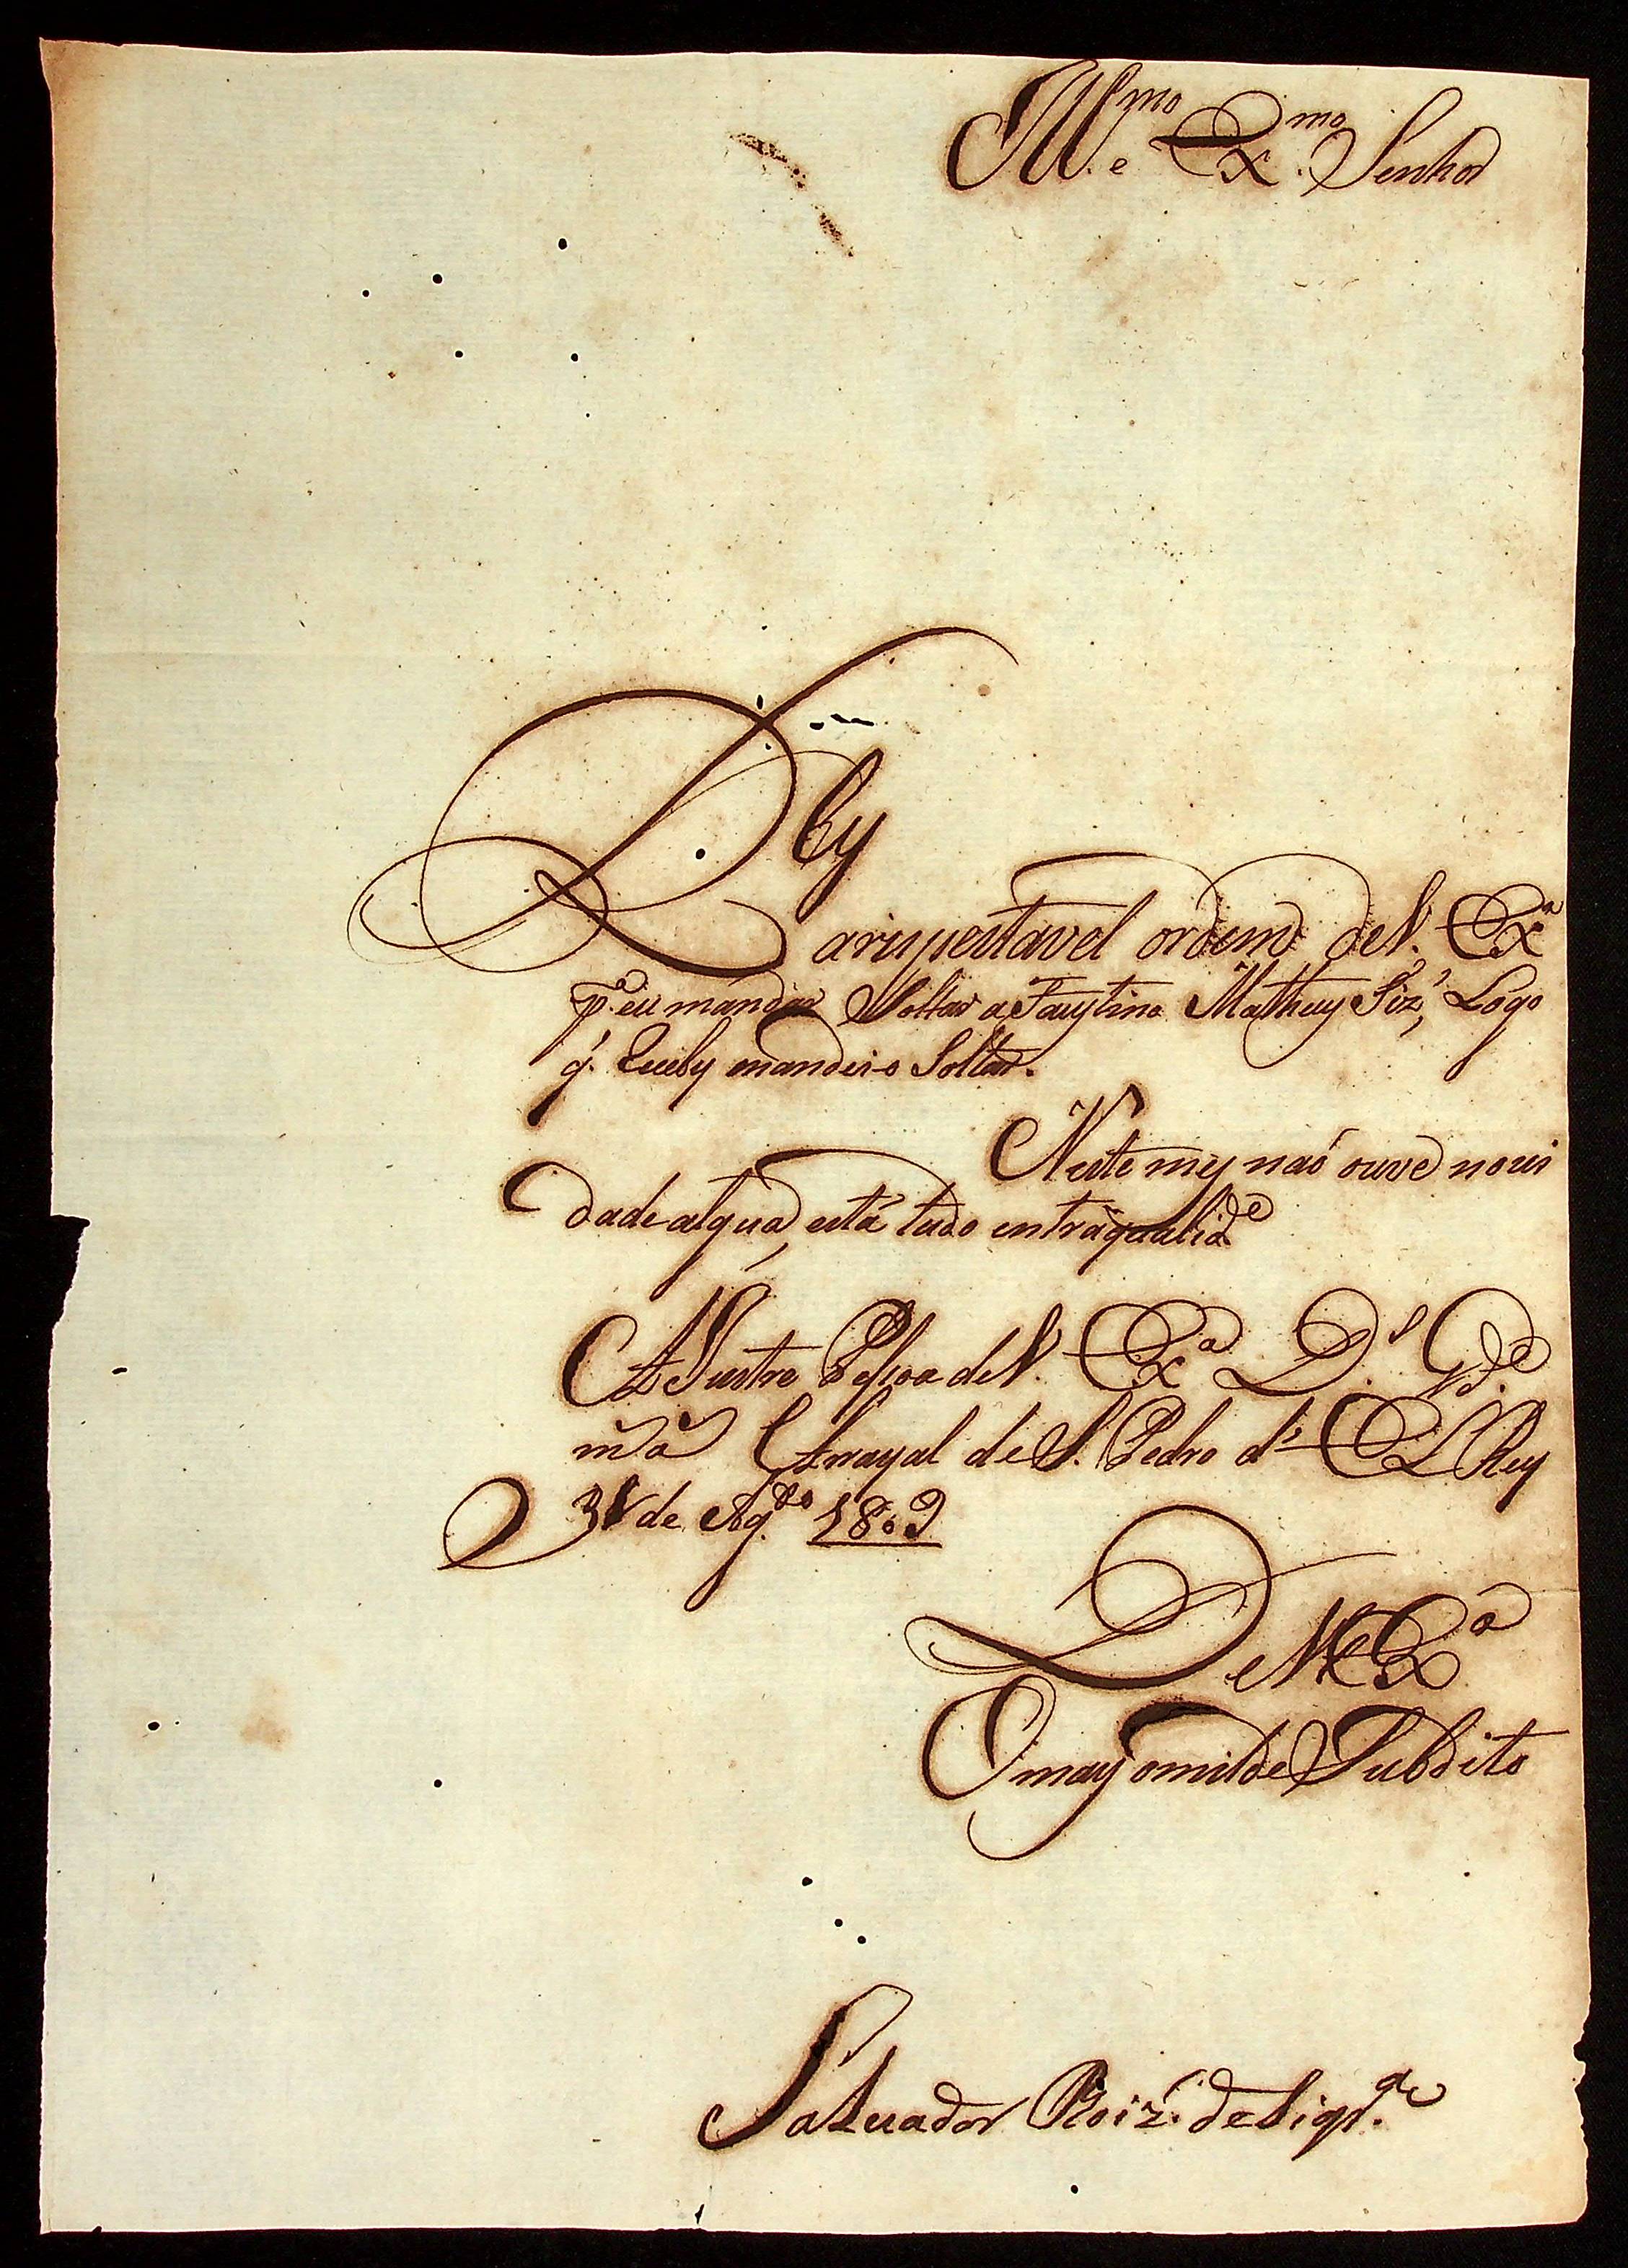 Ill.mo e Ex.mo Senhor
Rby
a respeitavel ordem de V. Exa
p.a eu mandar Soltar a Faustino Matheus Logo
q. Reseby mandei-o Soltar.
Neste mes naó ouve novi
dade algua, está tudo em trãqualid.e
A Ilustre Pesoa de V. Exa D.s G.de
m.s a.s Arrayal de S. Pedro d' El Rey
31 de Ag.to 1809
De V. Exa
O mays omilde Subdito
Salvador Roiz. de Siqr.a